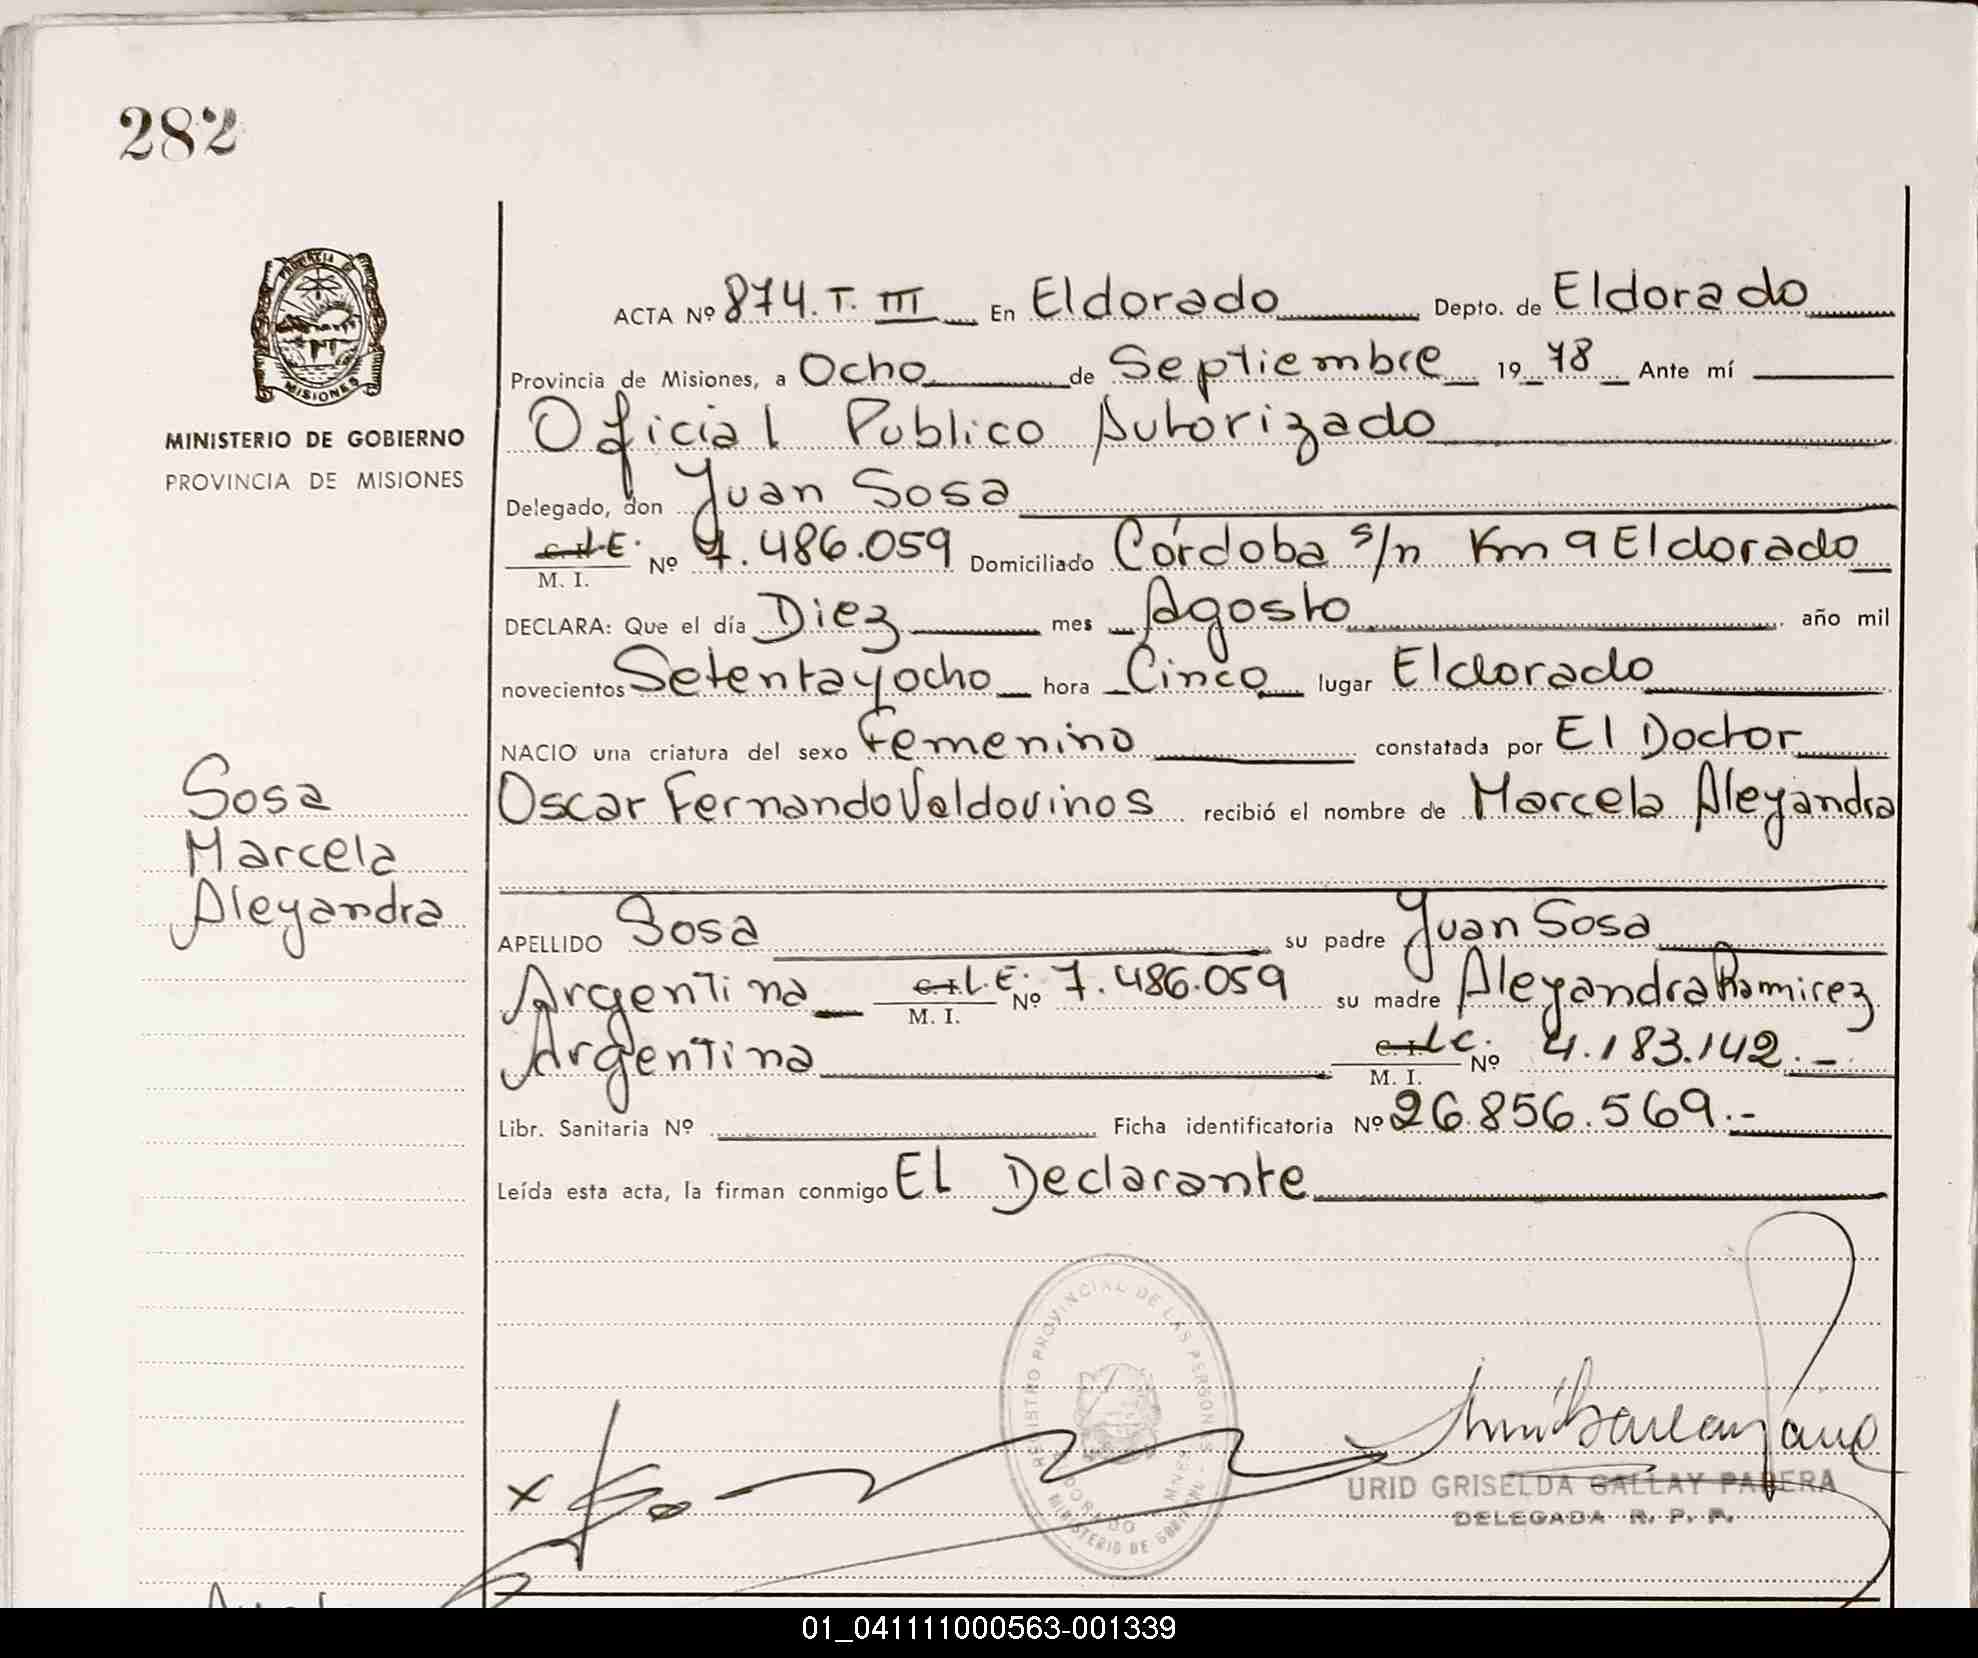 282
PROVINCIA DE
MISIONES
MINISTERIO DE GOBIERNO
PROVINCIA DE MISIONES
Sosa
Marcela
Aleyandra
ACTA Nº 874. T. III En Eldorado Depto. de Eldorado
Provincia de Misiones, a Ocho de Septiembre 19 78 Ante mí
Oficial Publico Autorizado
Delegado, don Yuan Sosa
L.E. M. I. Nº 7.486.059 Domiciliado Córdoba s/n Km 9 Eldorado
DECLARA: Que el día Diez mes Agosto año mil
novecientos Setentayocho hora Cinco lugar Eldorado
NACIO una criatura del sexo Femenino constatada por El Doctor
Oscar Fernando Valdovinos recibió el nombre de Marcela Aleyandra
APELLIDO Sosa su padre Yuan Sosa
Argentina C.I. L.E. M. I. Nº 7.486.059 su madre Aleyandra Ramirez
Argentina C.I. L.C. M. I. Nº 4.183.142.-
Libr. Sanitaria Nº Ficha identificatoria Nº 26.856.569.-
Leída esta acta, la firman conmigo El Declarante
REGISTRO PROVINCIAL DE LAS PERSONAS
ELDORADO MNES.
MINISTERIO DE GOBIERNO
x
URID GRISELDA GALLAY PARERA
DELEGADA R. P. P.
01_041111000563-001339